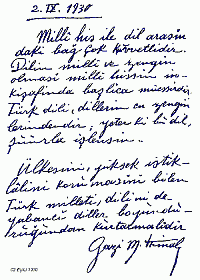 2. IX. 1930
Milli his ile dil arasın
daki bağ çok kuvvetlidir.
Dilin milli ve zengin
olması milli hissin in-
kişafında başlıca müessirdir.
Türk dili, dillerin en zengin
lerindendir; yeter ki bu dil,
şuurla işlensin.
Ülkesini, yüksek istik-
lâlini korumasını bilen
Türk milleti, dilini de
yabancı diller boyundu-
ruğundan kurtarmalıdır.
Gazi M. Kemal
02 Eylül 1930